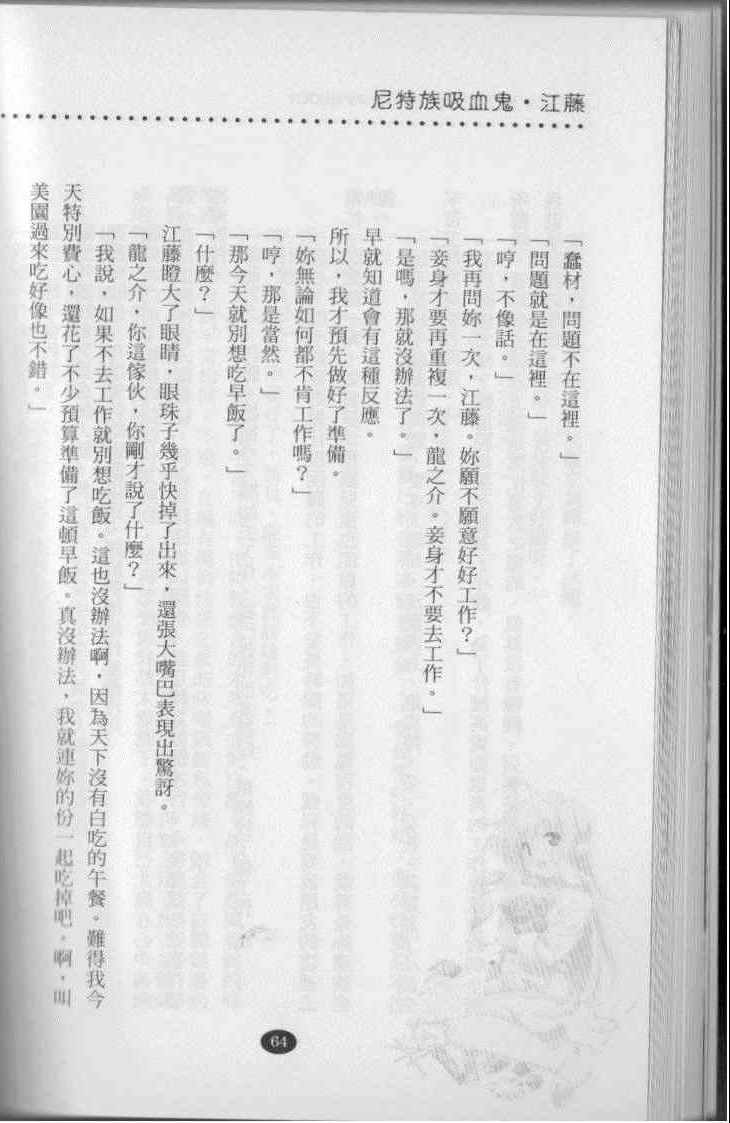 尼特族吸血鬼・江藤
「蠢材，問題不在這裡。」
「問題就是在這裡。」
「哼，不像話。」
「我再問妳一次，江藤。妳願不願意好好工作？」
「妾身才要再重複一次，龍之介。妾身才不要去工作。」
「是嗎，那就沒辦法了。」
早就知道會有這種反應。
所以，我才預先做好了準備。
「妳無論如何都不肯工作嗎？」
「哼，那是當然。」
「那今天就別想吃早飯了。」
「什麼？」
江藤瞪大了眼睛，眼珠子幾乎快掉了出來，還張大嘴巴表現出驚訝。
「龍之介，你這傢伙，你剛才說了什麼？」
「我說，如果不去工作就別想吃飯。這也沒辦法啊，因為天下沒有白吃的午餐。難得我今
天特別費心，還花了不少預算準備了這頓早飯。真沒辦法，我就連妳的份一起吃掉吧。啊，叫
美園過來吃好像也不錯。」
64